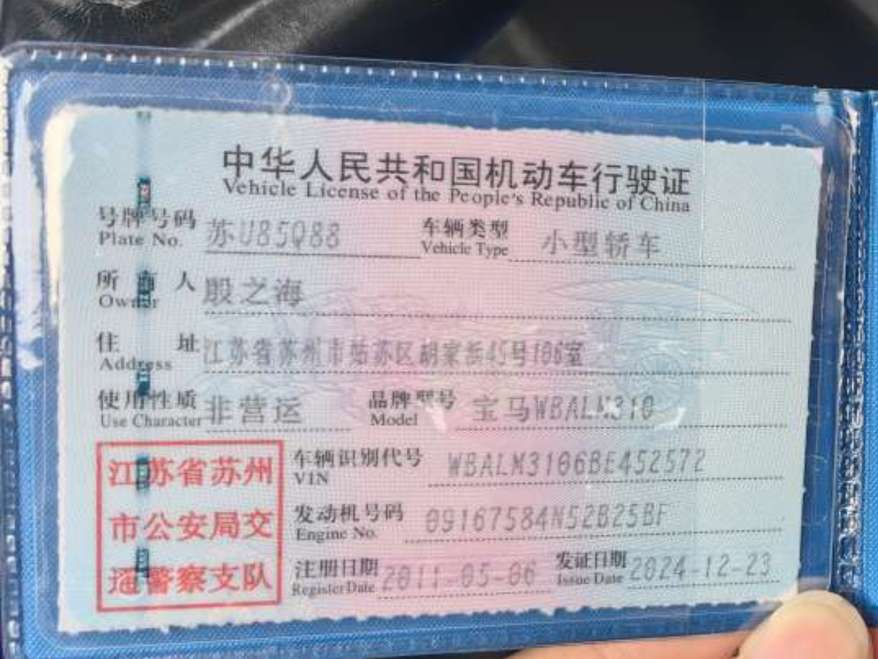 中华人民共和国机动车行驶证
Vehicle License of the People's Republic of China
号牌号码 苏U85Q88 车辆类型 小型轿车
Plate No. Vehicle Type
所有人 殷之海
Owner
住址 江苏省苏州市姑苏区胡家浜45号106室
Address
使用性质 非营运 品牌型号 宝马WBALM310
Use Character Model
江苏省苏州
市公安局交
通警察支队
车辆识别代号 WBALM3106BE452572
VIN
发动机号码 09167584N52B25BF
Engine No.
注册日期 2011-05-06 发证日期 2024-12-23
Register Date Issue Date